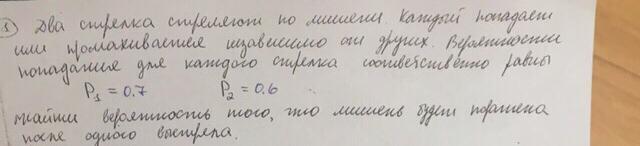 ① Два стрелка стреляют по мишени. Каждый попадает
или промахивается независимо от других. Вероятности
попадания для каждого стрелка соответственно равны
P₁ = 0.7 P₂ = 0.6
найти вероятность того, что мишень будет поражена
после одного выстрела.